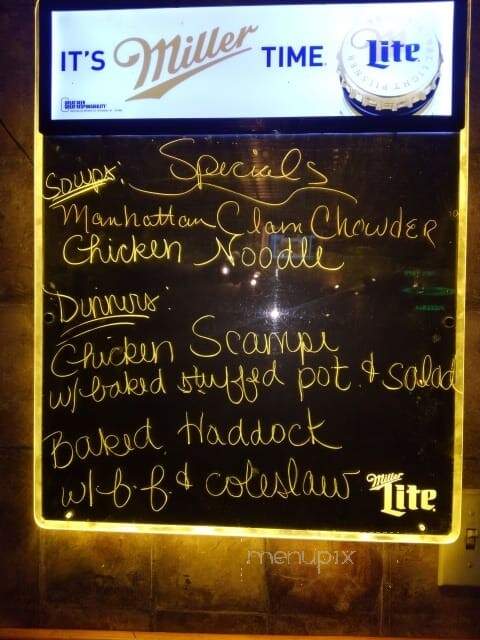 IT'S Miller TIME Lite
GREAT BEER
GREAT RESPONSIBILITY
Specials
Soups:
Manhattan Clam Chowder
Chicken Noodle
Dinners:
Chicken Scampi
w/baked stuffed pot. & salad
Baked Haddock
w/f.f. & coleslaw
Miller
Lite
menupix